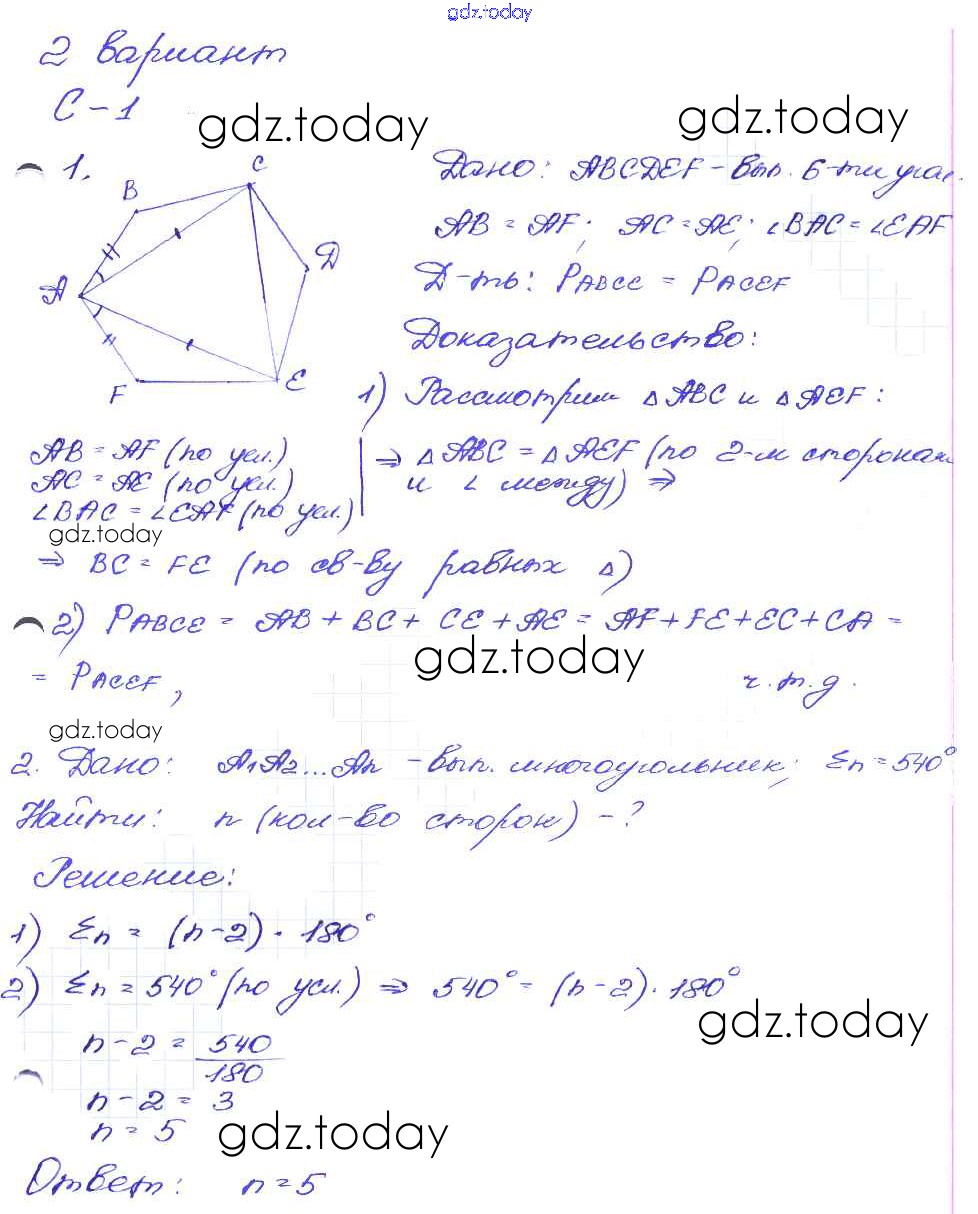 gdz.today
2 вариант
С-1
gdz.today
gdz.today
1.
B
C
D
A
F
E
Дано: ABCDEF - вып. 6-тиугол.
AB = AF; AC = AE; ∠BAC = ∠EAF
Д-ть: PABCE = PACEF
Доказательство:
1) Рассмотрим △ABC и △AEF:
AB = AF (по усл.)
AC = AE (по усл.)
∠BAC = ∠EAF (по усл.)
⇒ △ABC = △AEF (по 2-м сторонам
и ∠ между) ⇒
gdz.today
⇒ BC = FE (по св-ву равных △)
2) PABCE = AB + BC + CE + AE = AF + FE + EC + CA =
gdz.today
= PACEF, ч.т.д.
gdz.today
2. Дано: A1A2...An - вып. многоугольник; Σn = 540°
Найти: n (кол-во сторон) - ?
Решение:
1) Σn = (n-2) · 180°
2) Σn = 540° (по усл.) ⇒ 540° = (n-2) · 180°
gdz.today
n - 2 = 540/180
n - 2 = 3
n = 5
gdz.today
Ответ: n = 5